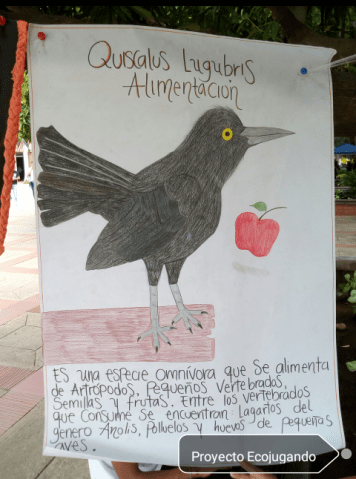 Quiscalus Lugubris
Alimentación
Es una especie omnívora que se alimenta
de Artrópodos, Pequeños Vertebrados,
Semillas y frutas. Entre los vertebrados
que consume se encuentran Lagartos del
genero Anolis, Polluelos y huevos de pequeñas
aves.
Proyecto Ecojugando